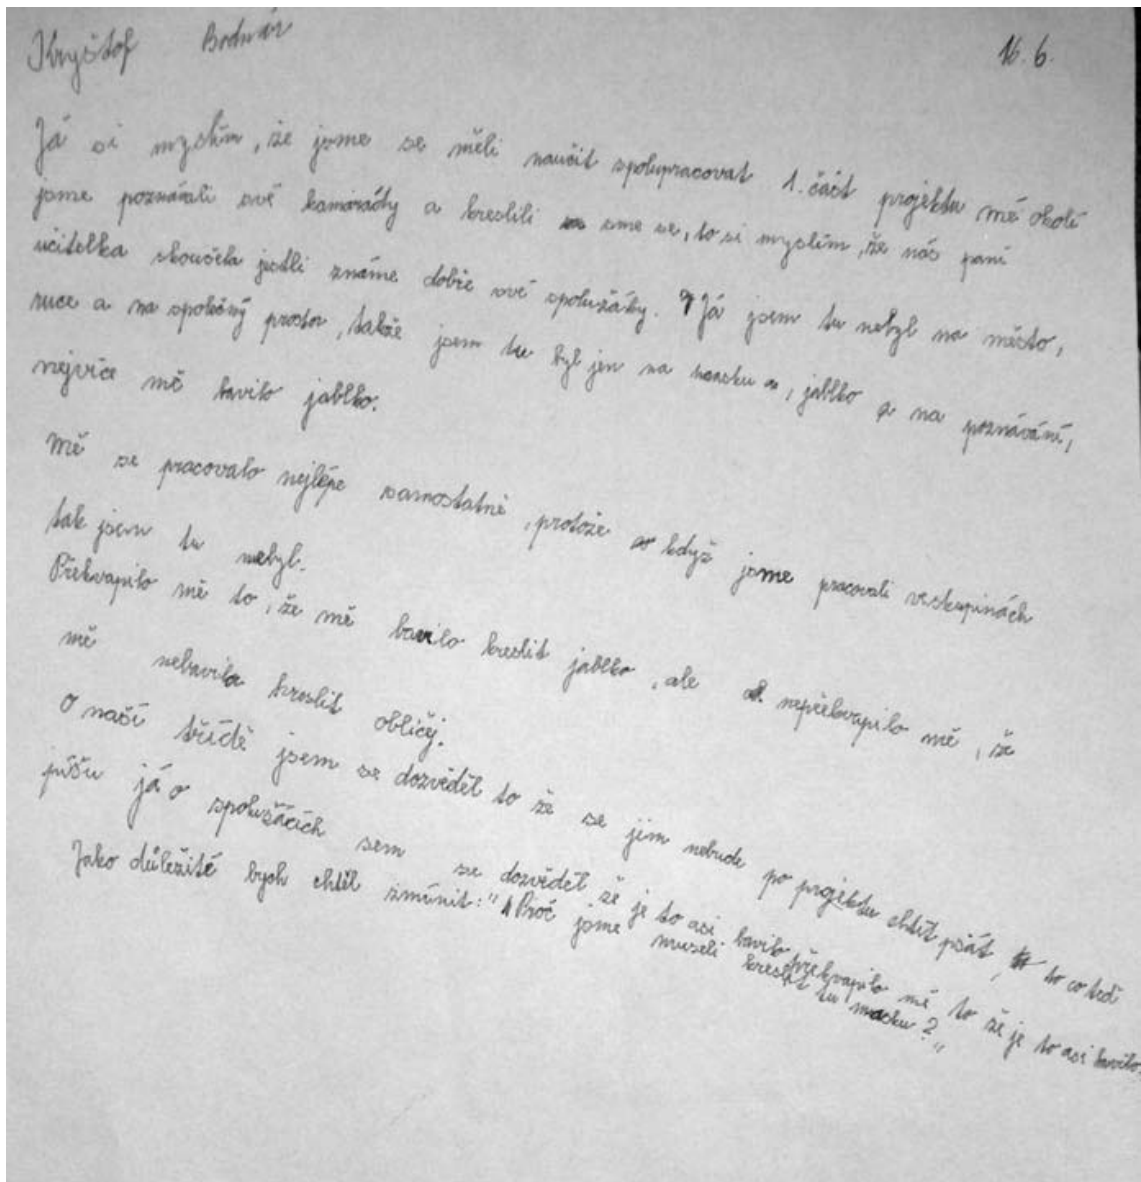 Kryštof Bodnár 16. 6.
Já si myslím, že jsme se měli naučit spolupracovat 1. část projektu mé okolí
jsme poznávali své kamarády a kreslili sme se, to si myslím, že nás paní
učitelka skoušela jestli známe dobře své spolužáky. Já jsem tu nebyl na město,
ruce a na společný prostor, takže jsem tu byl jen na masku, jablko a na poznávání,
nejvíce mě bavilo jablko.
Mě se pracovalo nejlépe samostatně, protože když jsme pracovali ve skupinách
tak jsem tu nebyl.
Překvapilo mě to, že mě bavilo kreslit jablko, ale nepřekvapilo mě, že
mě nebavilo kreslit obličej.
O naší třídě jsem se dozvěděl to že se jim nebude po projektu chtít psát, to co teď
píšu já o spolužácích sem se dozvěděl že je to asi bavilo překvapilo mě to že je to asi bavilo.
Jako důležité bych chtěl zmínit: "Proč jsme museli kreslit tu masku?"